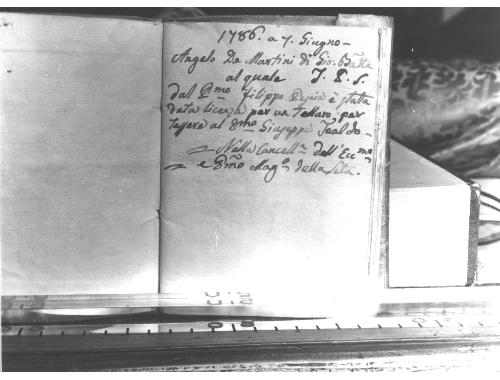 1786. a 7. Giugno -
Angelo De Martini di Gio: Batta
al quale J. P. S.
dal Dmo Filippo è stata
data licenza per un tellaro, per
tessere al Dmo Giuseppe Tealdo -
Nella Cancell.a dell'Ecc.mo
e Dmo Mag.o della Seta.